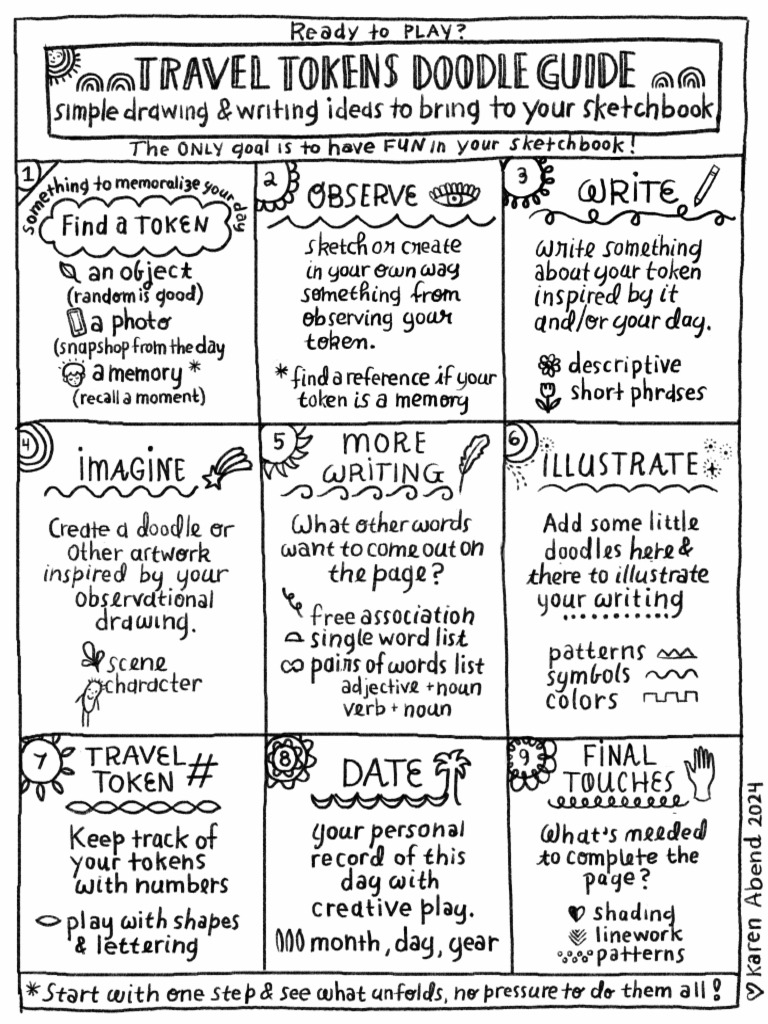 Ready to PLAY?
TRAVEL TOKENS DOODLE GUIDE
simple drawing & writing ideas to bring to your sketchbook
The ONLY goal is to have FUN in your sketchbook!
1
something to memoralize your day
Find a TOKEN
an object
(random is good)
a photo
(snapshop from the day
a memory *
(recall a moment)
2
OBSERVE
sketch or create
in your own way
something from
observing your
token.
*find a reference if your
token is a memory
3
WRITE
write something
about your token
inspired by it
and/or your day.
descriptive
short phrases
4
IMAGINE
Create a doodle or
other artwork
inspired by your
observational
drawing.
scene
character
5
MORE
WRITING
What other words
want to come out on
the page?
free association
single word list
pairs of words list
adjective + noun
verb + noun
6
ILLUSTRATE
Add some little
doodles here &
there to illustrate
your writing
patterns
symbols
colors
7
TRAVEL
TOKEN #
Keep track of
your tokens
with numbers
play with shapes
& lettering
8
DATE
your personal
record of this
day with
creative play.
month, day, year
9
FINAL
TOUCHES
What's needed
to complete the
page?
shading
linework
patterns
*Start with one step & see what unfolds, no pressure to do them all!
♡ Karen Abend 2024